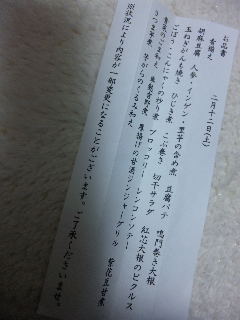 お品書
二月十二日(土)
香揃え
胡麻豆腐 人参・インゲン・里芋の含め煮 豆腐パテ 鳴門巻き大根
玉ねぎがんも焼き ひじき煮 こぶ巻き 切干サラダ 紅芯大根のピクルス
ごぼう・こんにゃくの炒り煮 ブロッコリー レンコンソテー
青菜のごま和え 生麩青煮 厚揚げの甘酒ジンジャーグリル
さつま芋煮 芋がらのくるみ和え 紫花豆甘煮
※状況により内容が一部変更になることがございます。ご了承くださいませ。